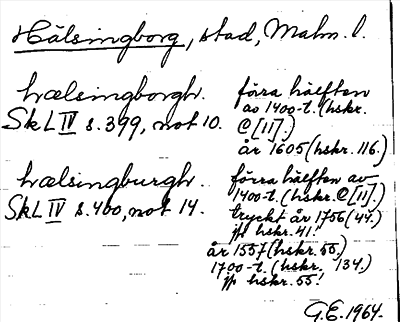 Hälsingborg, stad, Malm. l.
hælsingborgh. förra hälften
av 1400-t. (hskr.
SkL IV s. 399, not 10. C [11].)
år 1605 (hskr. 116.)
hælsingburgh. förra hälften av
1400-t. (hskr. C [11].)
SkL IV s. 400, not 14. tryckt år 1756 (44.)
jfr hskr. 41!
år 1557 (hskr. 55.)
1700-t. (hskr. 134.)
jfr hskr. 55!
G.E. 1964.